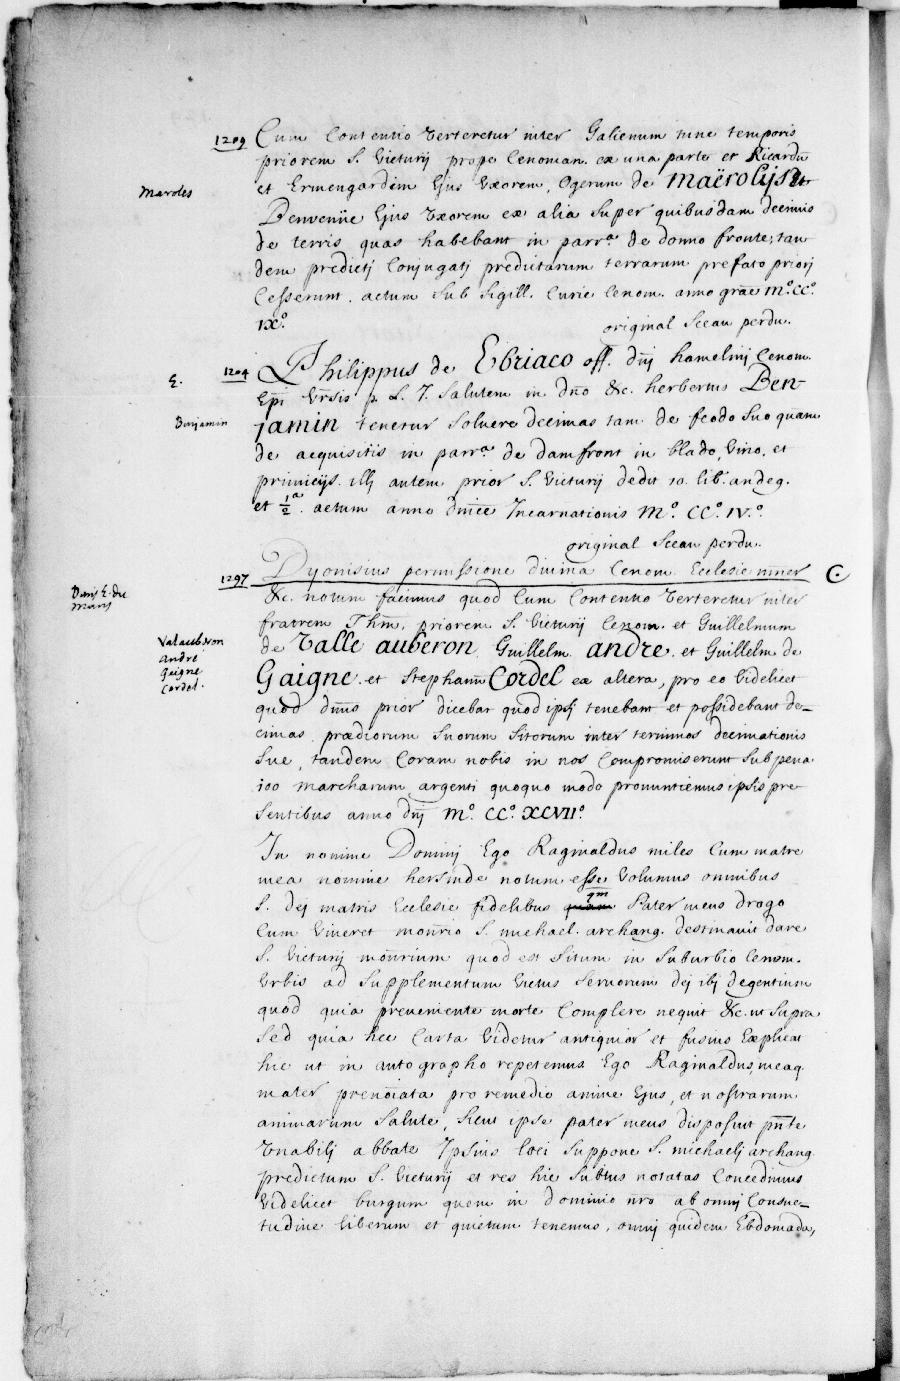 1209 Cum Contentio verteretur inter Galienum tunc temporis
priorem S. Victurij prope Cenoman. ex una parte et Ricardū
Maroles
et Ermengardim Ejus Uxorem, Ogerum de maërolijs et
Benvenüe Ejus Uxorem ex alia super quibusdam decimis
de terris quas habebant in parr.ª de donno fronte, tan
dem predictj Conjugatj predictarum terrarum prefato priorj
Cesserunt. actum sub sigill. Curie Cenom. anno grãe m.º CC.º
IX.º
original Sceau perdu.
1204 Philippus de Ebriaco off. dnj hamelinj Cenom.
E.
Epi Ursis p. L. J. Salutem in dño &c. herbertus Ben-
Benjamin
jamin tenetur solvere decimas tam de feodo suo quam
de acquisitis in parr.ª de damfront in blado, vino, et
primicijs. illj autem prior S. Victurij dedit 10. lib. andeg.
et ½ª. actum anno dnice Incarnationis M.º CC.º IV.º
original Sceau perdu.
1297 Dyonisius permissione divina Cenom. Ecclesie minister
Denis E. du
mans
&c. notum facimus quod Cum Contentio Verteretur inter
fratrem Thm. priorem S. Victurij Cenom. et Guillelmum
Valaubron
andré
Gaigne
Cordel.
de Valle auberon Guillelm. andre. et Guillelm de
Gaigne. et Stephanū Cordel ex altera, pro eo videlicet
quod dnus prior dicebat quod ipsj tenebant et possidebant de-
cimas prædiorum suorum sitorum inter terminos decimationis
sue, tandem Coram nobis in nos Compromiserunt sub pena
100 marcharum argenti quoquo modo pronuntiemus ipsis pre
sentibus anno dnj M.º CC.º XCVII.º
In nomine Dominj Ego Raginaldus miles Cum matre
mea nomine hersinde notum esse Volumus omnibus
S. dej matris Ecclesie fidelibus qm Pater meus drogo
Cum Viveret monrio S. michael. archang. destinavit dare
S. Victurij monrium quod est situm in suburbio Cenom.
Urbis ad supplementum Victus Servorum dej ibj degentium
quod quia preveniente morte Complere nequit &c. ut supra
sed quia hec Carta Videtur antiquior et fusius Explicat
hic ut in autographo repetemus Ego Raginaldus, meaq.
mater prenoiata pro remedio anime Ejus, et nostrarum
animarum Salute, sicut ipse pater meus disposuit pnte
Vnabilj abbate Ipsius loci suppone S. michaelj archang.
predictum S. Victurij et res hic subtus notatas Concedimus
Videlicet burgum quem in dominio nro ab omnj Consue-
tudine liberum et quietum tenemus, omnj quidem Ebdomada,